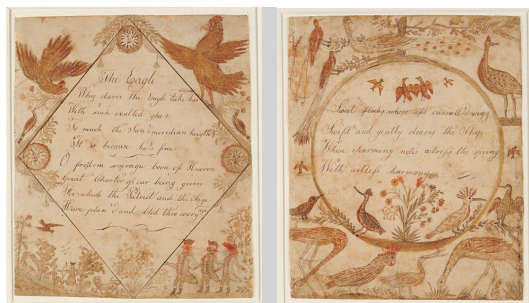 The Eagle
Why does the Eagle take his
With such exalted glee
To reach the Sun's meridian heights
It is because he's free
O freedom sovereign boon of Heaven
Great Charter of our being given
For which the Patriot and the Sage
Have plan'd and bled thro' every
Sweet flocks whose soft enamell'd wing
Swift and gently cleaves the sky
Whose charming notes address the spring
With artless harmony